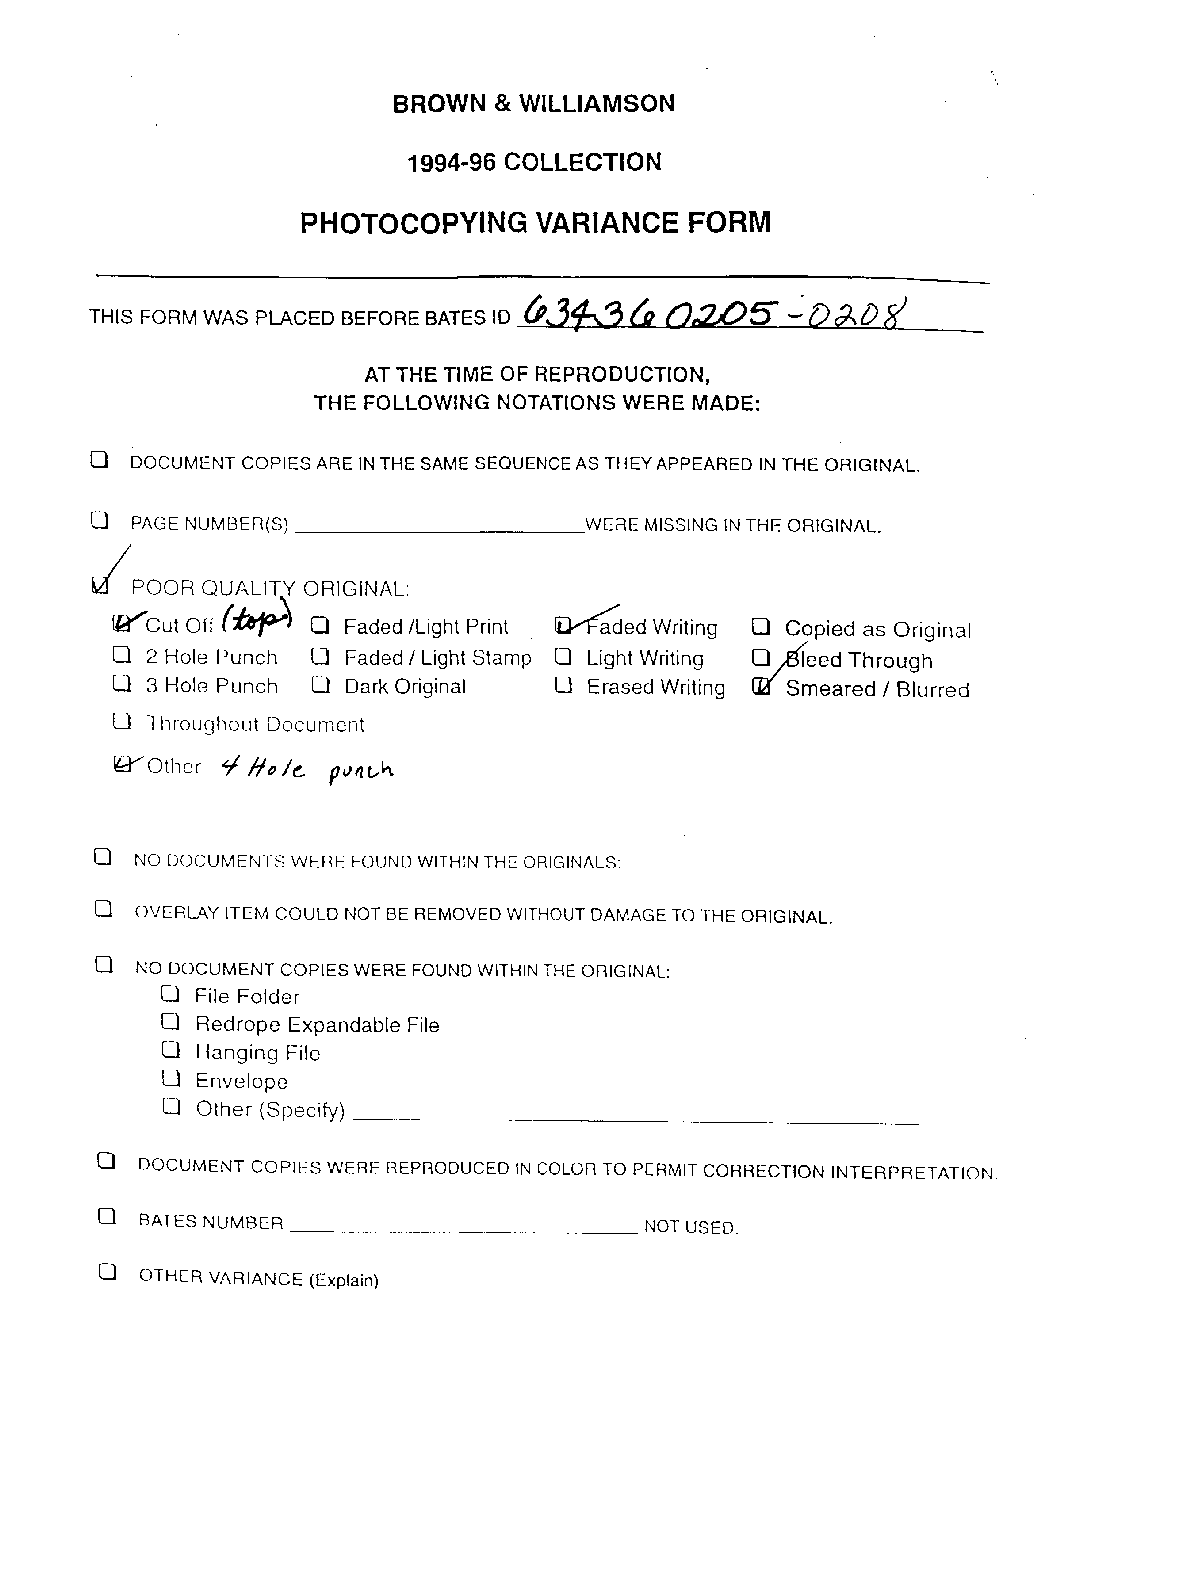 BROWN & WILLIAMSON
1994-96 COLLECTION
PHOTOCOPYING VARIANCE FORM
THIS FORM WAS PLACED BEFORE BATES ID 634360205-0208
AT THE TIME OF REPRODUCTION,
THE FOLLOWING NOTATIONS WERE MADE:
DOCUMENT COPIES ARE IN THE SAME SEQUENCE AS THEY APPEARED IN THE ORIGINAL.
PAGE NUMBER(S) WERE MISSING IN THE ORIGINAL.
POOR QUALITY ORIGINAL:
Cut Off (top) Faded /Light Print Faded Writing Copied as Original
2 Hole Punch Faded / Light Stamp Light Writing Bleed Through
3 Hole Punch Dark Original Erased Writing Smeared / Blurred
Throughout Document
Other 4 Hole punch
NO DOCUMENTS WERE FOUND WITHIN THE ORIGINALS:
OVERLAY ITEM COULD NOT BE REMOVED WITHOUT DAMAGE TO THE ORIGINAL.
NO DOCUMENT COPIES WERE FOUND WITHIN THE ORIGINAL:
File Folder
Redrope Expandable File
Hanging File
Envelope
Other (Specify)
DOCUMENT COPIES WERE REPRODUCED IN COLOR TO PERMIT CORRECTION INTERPRETATION.
BATES NUMBER NOT USED.
OTHER VARIANCE (Explain)